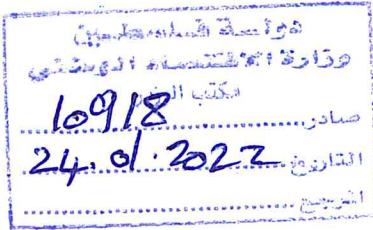 دولة فلسطين
وزارة الاقتصاد الوطني
مكتب الوزير
صادر 10918
التاريخ 24.01.2022
المرجع